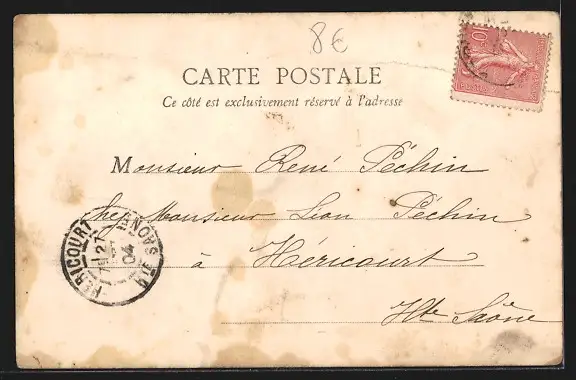 8€
CARTE POSTALE
Ce côté est exclusivement réservé à l'adresse
Monsieur René Péchin
chez Monsieur Léon Péchin
à Héricourt
Hte Saône
HERICOURT
27
04
Hte SAONE
10